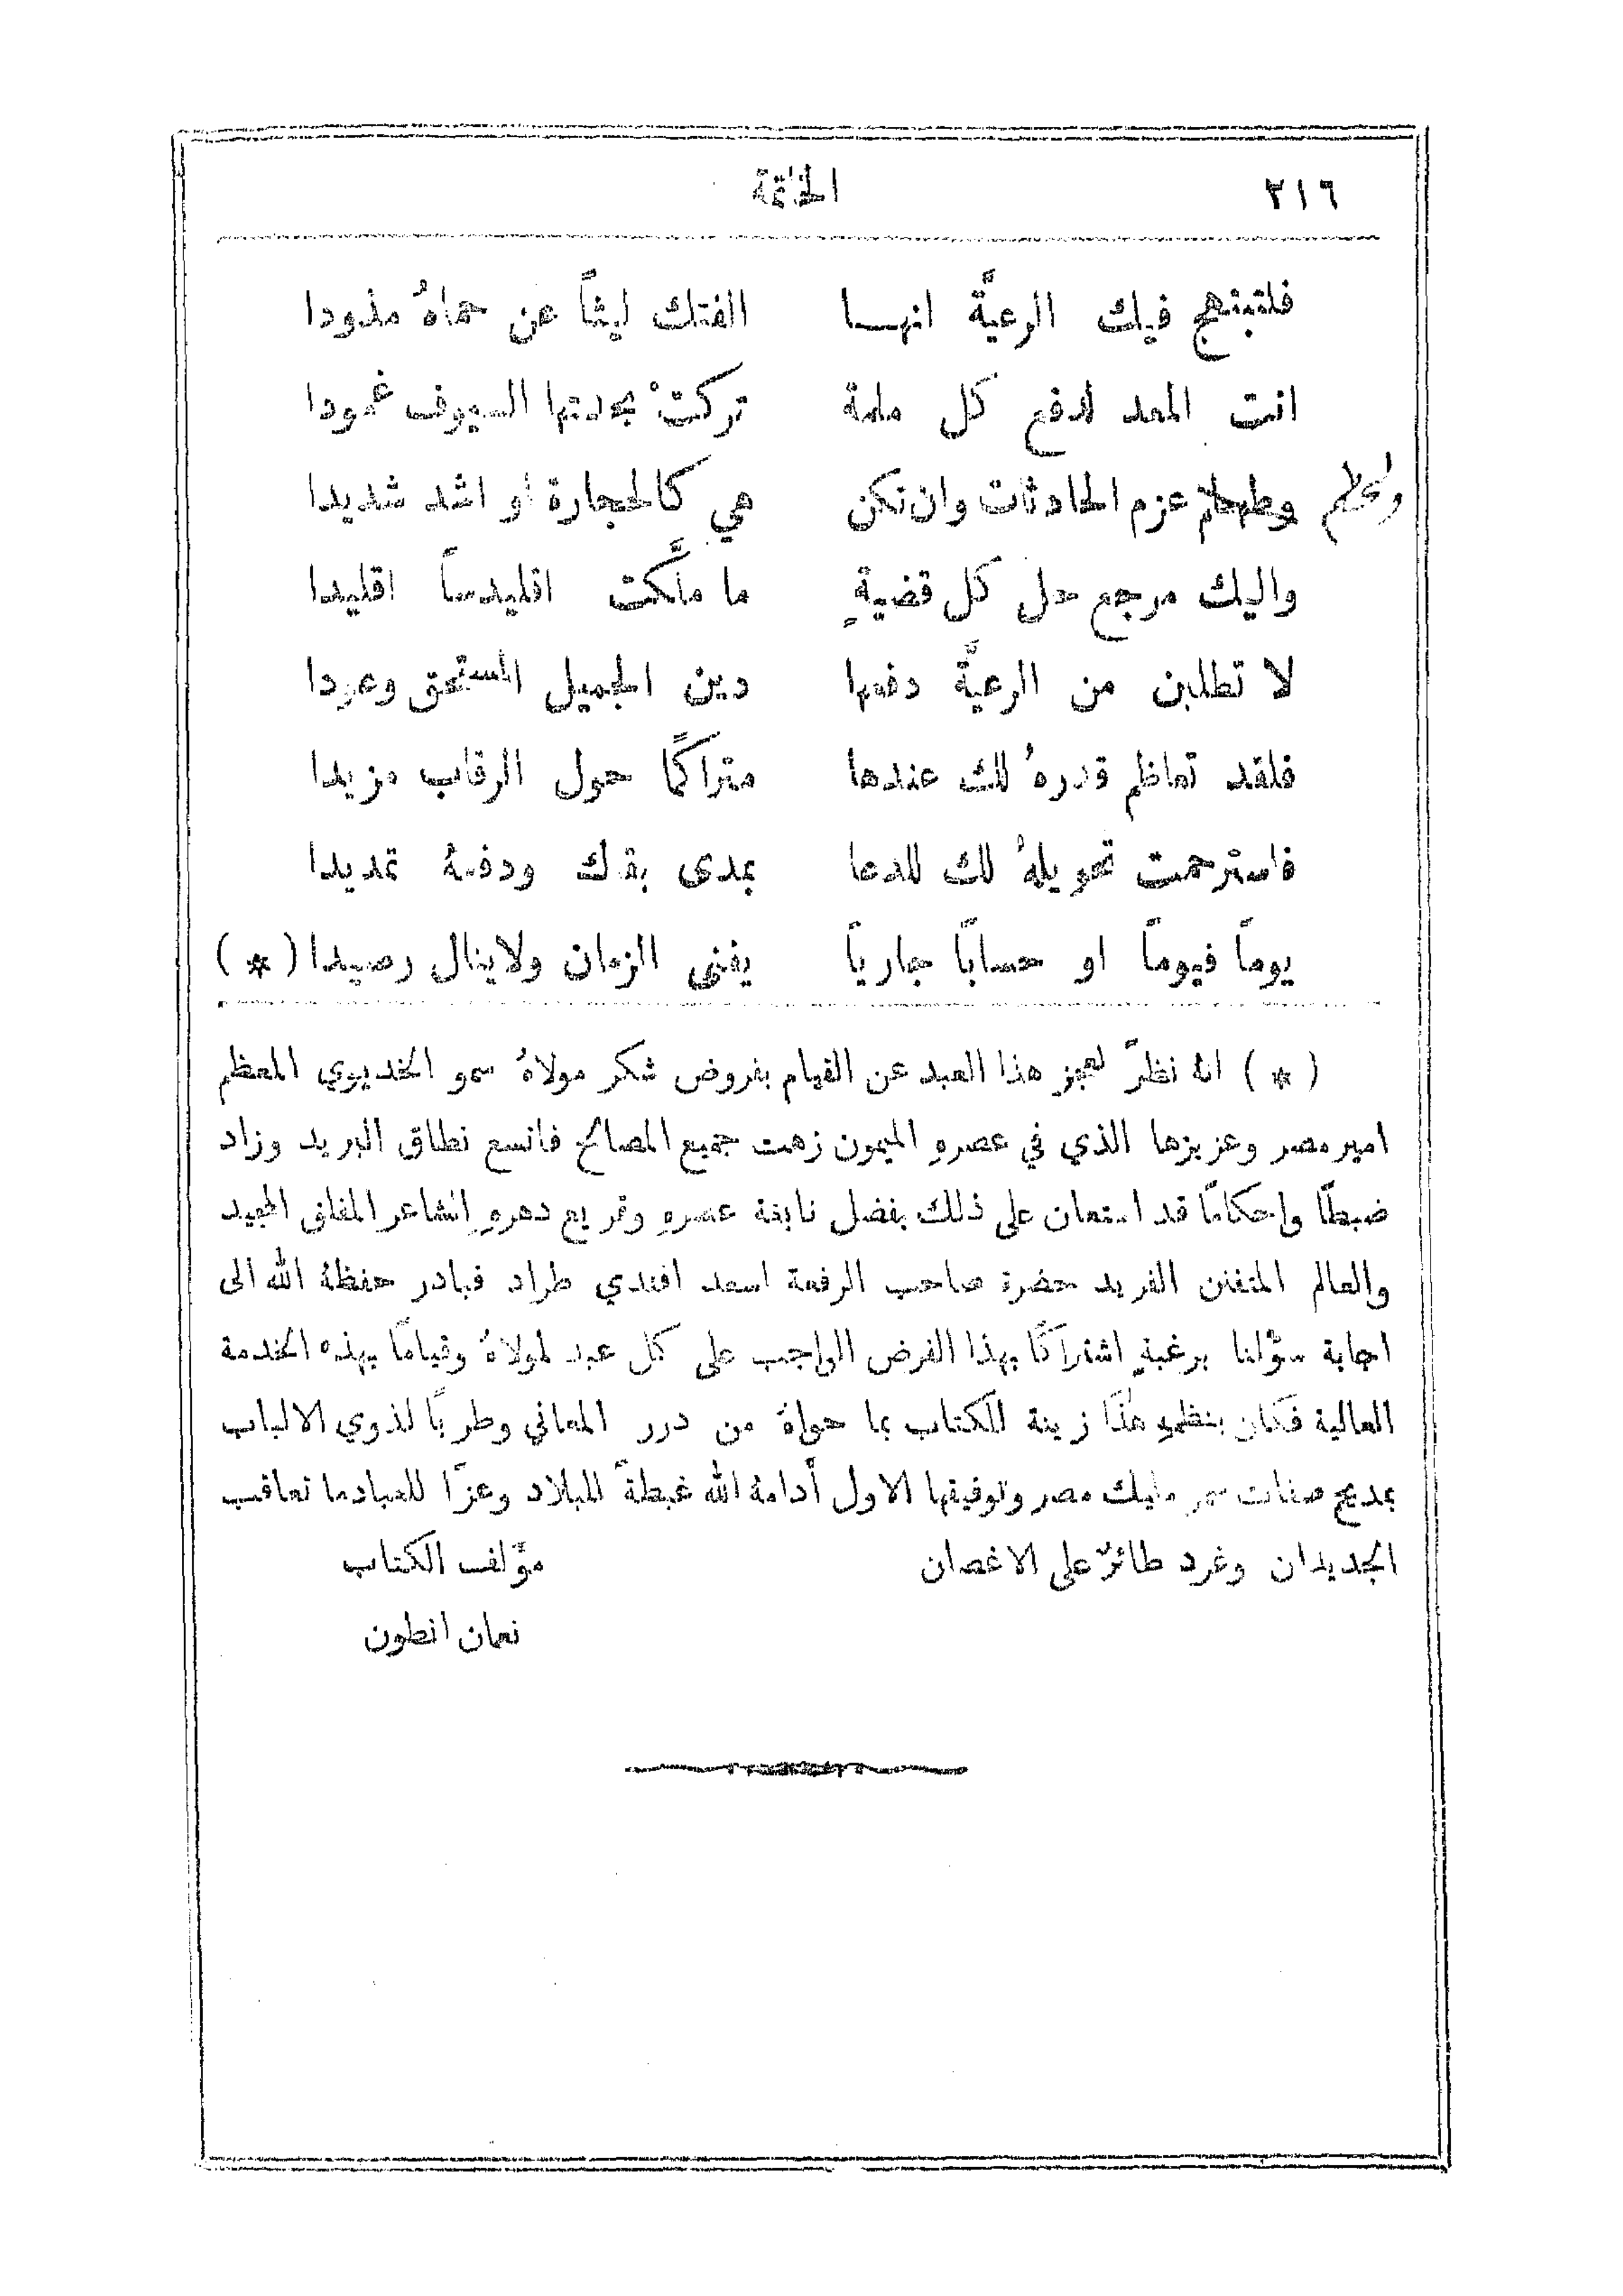 ٢١٦ الخاتمة
فلتبتهج فيك الرعيَّة انهـا الفتك ليثاً عن حماهُ مذودا
انت المعد لدفع كل ملمة تركتْ بحدتها السيوف غمودا
وطهطم عزم الحادثات وان تكن هي كالحجارة او اشد شديدا
واليك مرجع حل كل قضيةٍ ما ملَّكت اقليدساً اقليدا
لا تطلبن من الرعيَّة دفعها دين الجميل المستحق وعودا
فلقد تعاظم قدرهُ لك عندها متراكمًا حول الرقاب مزيدا
فاسترحمت تحويلهُ لك للدعا بمدى بقاك ودفعهُ تمديدا
يوماً فيوماً او حسابًا جارياً يفنى الزمان ولا ينال رصيدا (*)
(*) انهُ نظرًا لعجز هذا العبد عن القيام بفروض شكر مولاهُ سمو الخديوي المعظم
امير مصر وعزيزها الذي في عصرهِ الميمون زهت جميع المصالح فاتسع نطاق البريد وزاد
ضبطًا واحكامًا قد استعان على ذلك بفضل نابغة عصرهِ وقريع دهرهِ الشاعر المفلق المجيد
والعالم المتفنن الفريد حضرة صاحب الرفعة اسعد افندي طراد فبادر حفظهُ الله الى
اجابة سؤلنا برغبةٍ اشتراكًا بهذا الفرض الواجب على كل عبد لمولاهُ وقيامًا بهذه الخدمة
العالية فكان بنظمهِ هذا زينة للكتاب بما حواهُ من درر المعاني وطربًا لذوي الالباب
بمديح صفات سمو مليك مصر وتوفيقها الاول أدامهُ الله غبطةً للبلاد وعزًا للعباد ما تعاقب
الجديدان وغرد طائرٌ على الاغصان مؤلف الكتاب
نعمان انطون